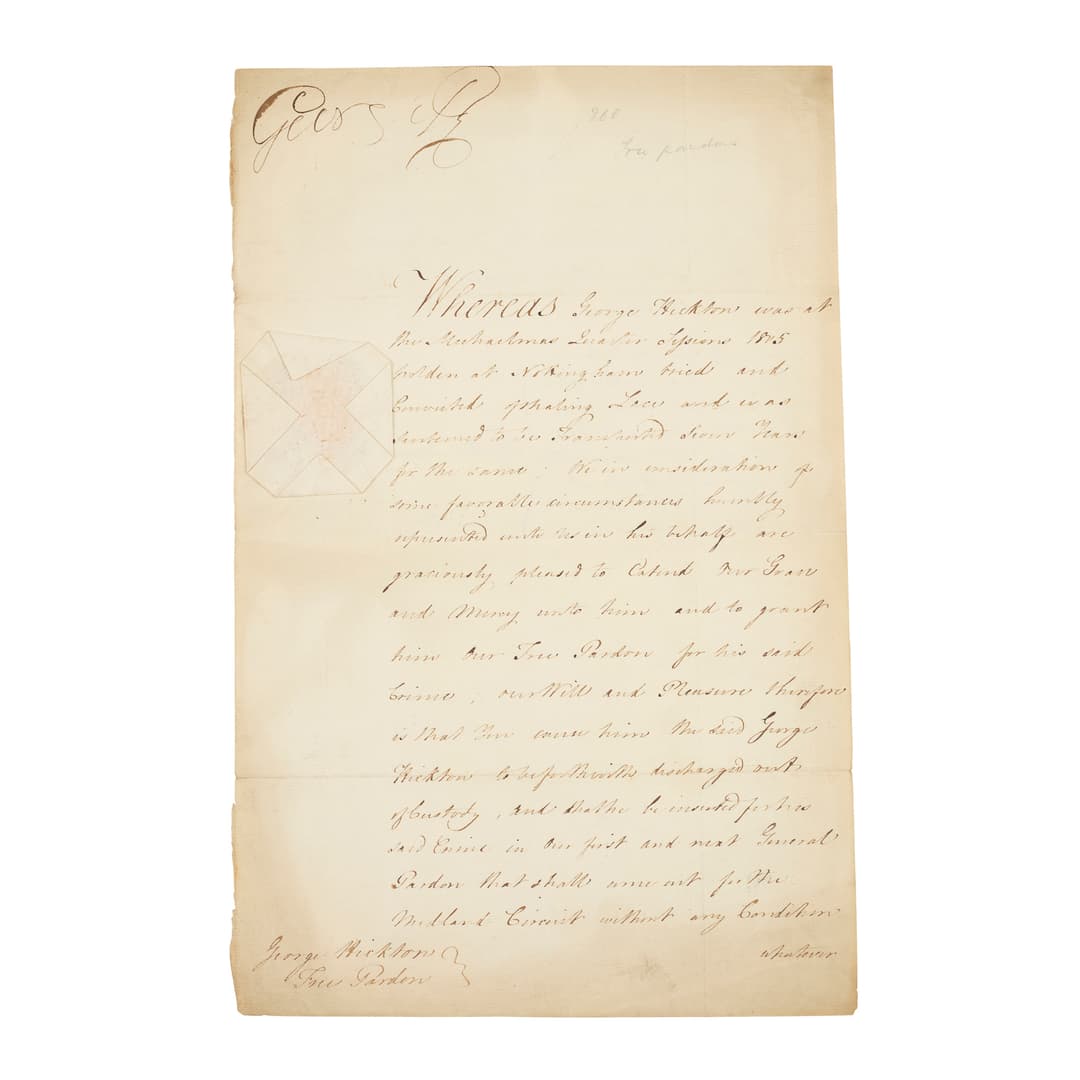 George R
Free pardons
Whereas George Hickton was at
the Michaelmas Quarter Sessions
holden at Nottingham tried and
Convicted of stealing Lace and was
sentenced to be Transported Seven Years
for the same; We in consideration of
some favorable circumstances humbly
represented unto Us in his behalf are
graciously pleased to Extend Our Grace
and Mercy unto him and to grant
him Our Free Pardon for his said
Crime; Our Will and Pleasure therefore
is that You cause him the said George
Hickton to be forthwith discharged out
of Custody, and that he be inserted for his
said Crime in Our first and next General
Pardon that shall come out for the
Midland Circuit without any Condition
whatever
George Hickton
Free Pardon